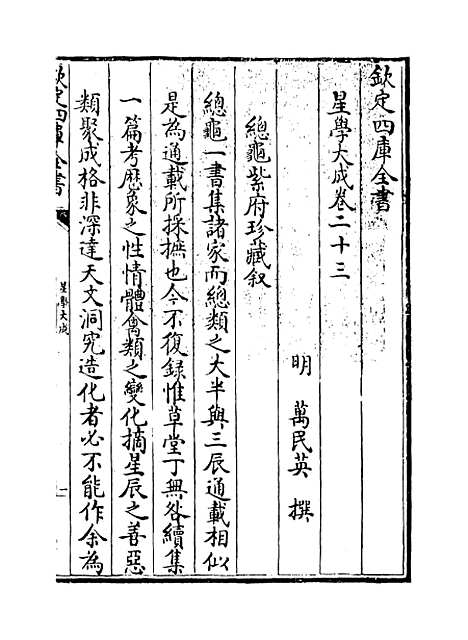 欽定四庫全書
星學大成卷二十三
明 萬民英 撰
總龜紫府珍藏叙
總龜一書集諸家而總類之大半與三辰通載相似
是為通載所採摭也今不復録惟草堂丁無咎續集
一篇考厯象之性情體禽類之變化摘星辰之善惡
類聚成格非深達天文洞究造化者必不能作余為
欽定四庫全書
星學大成
一